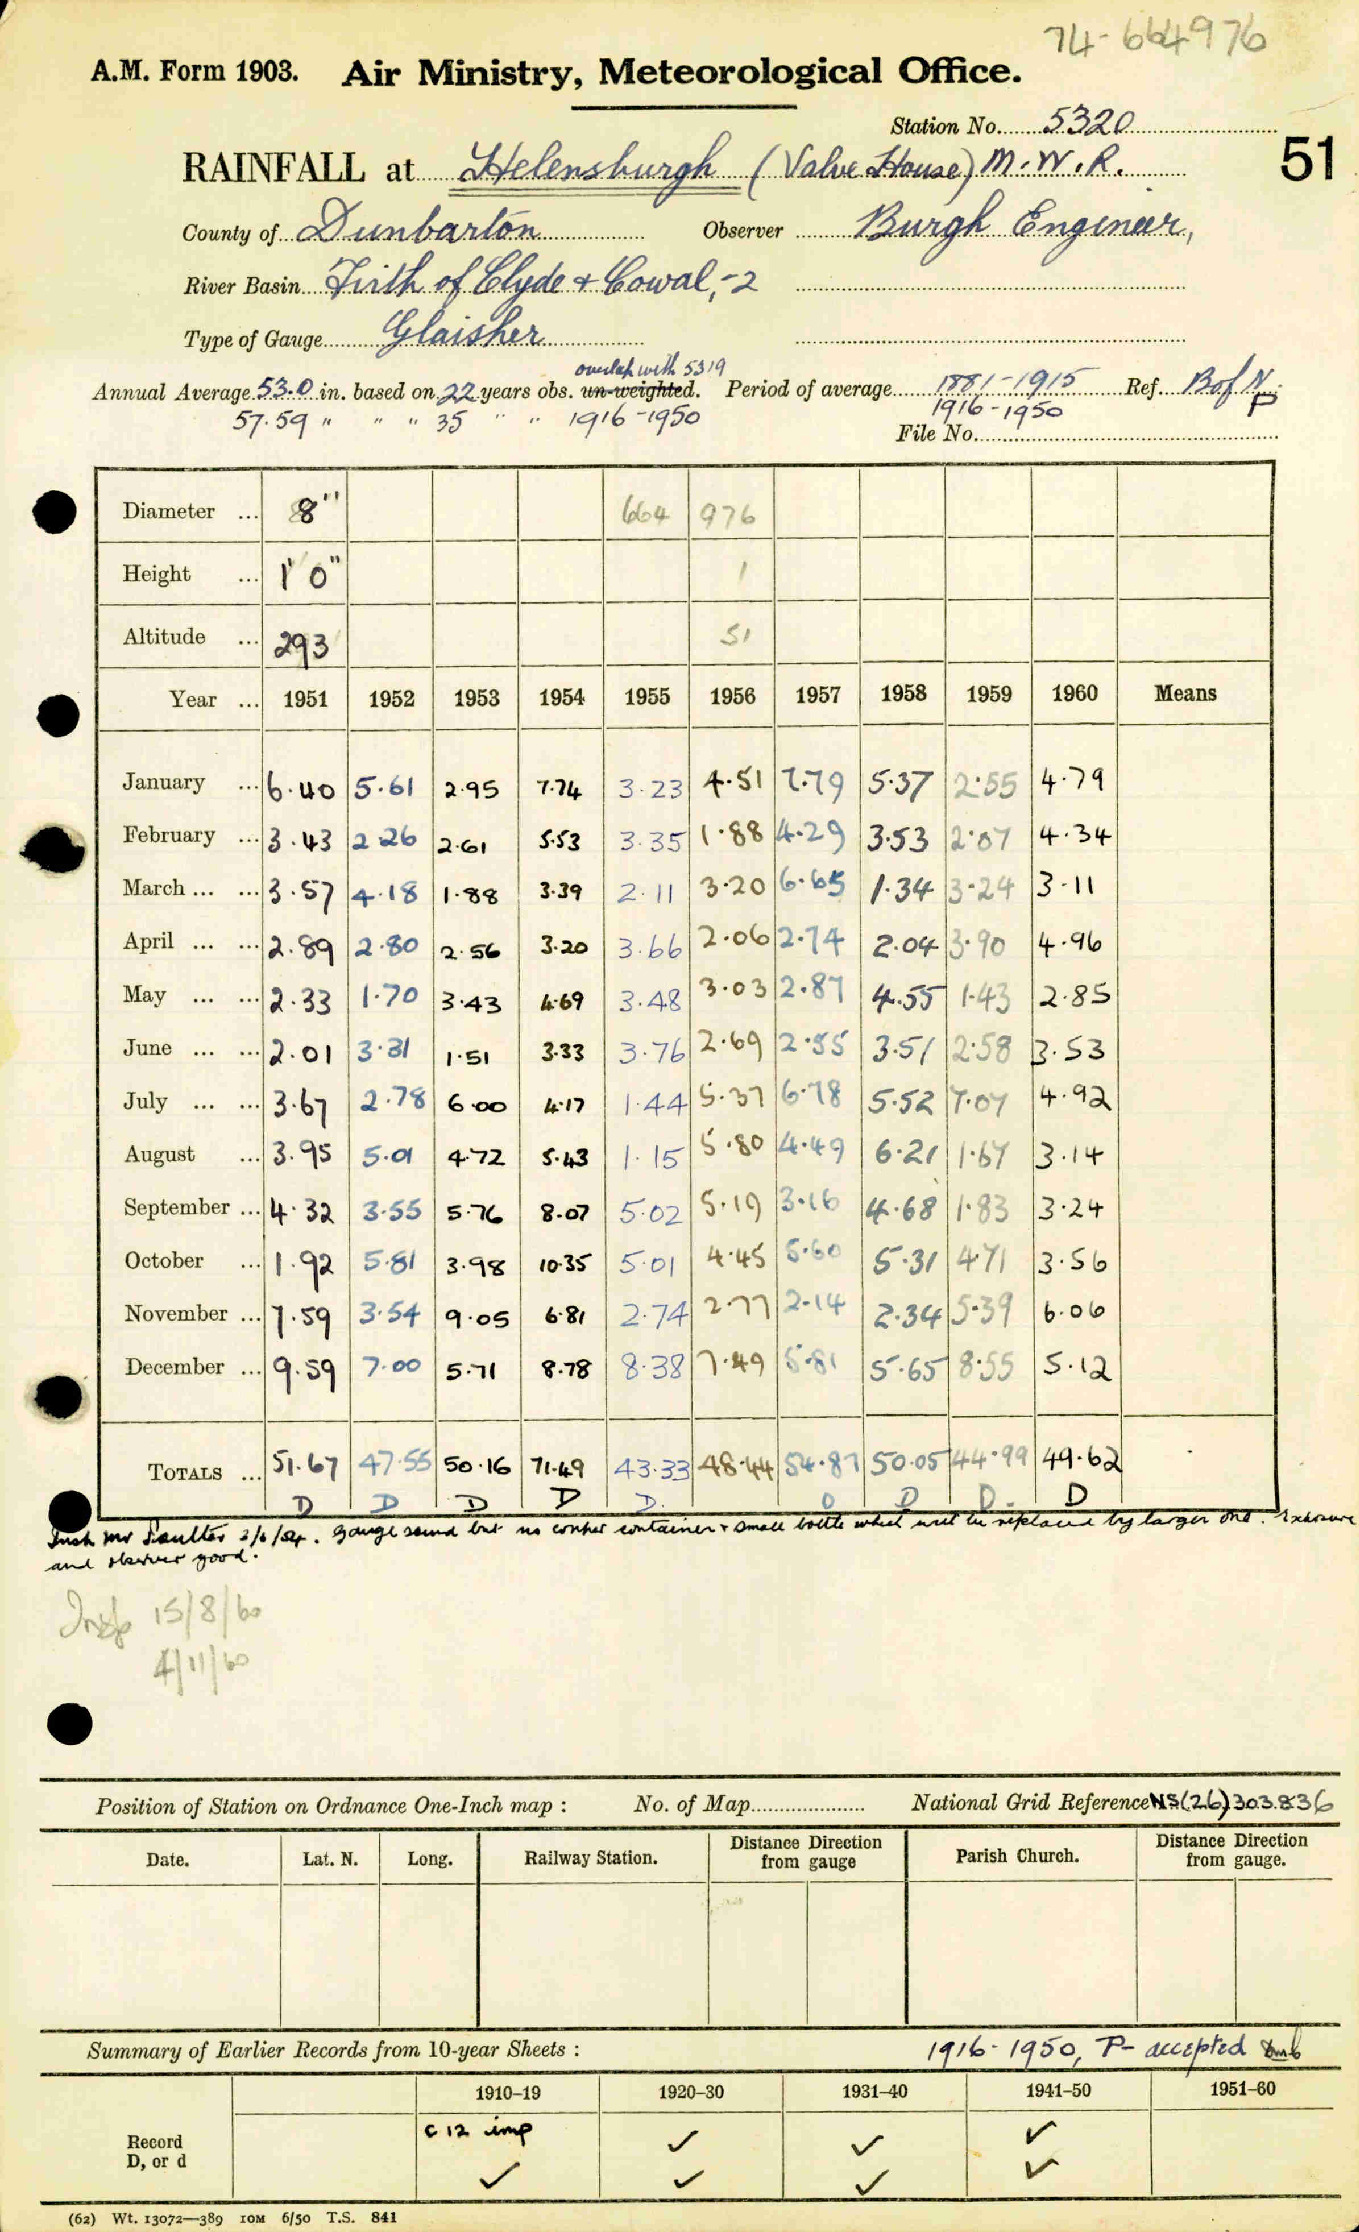 74-664976
A.M. Form 1903. Air Ministry, Meteorological Office.
Station No. 5320
51
RAINFALL at Helensburgh (Valve House) M.W.R.
County of Dunbarton Observer Burgh Engineer,
River Basin Firth of Clyde & Cowal,-2
Type of Gauge Glaisher
overlap with 5319
Annual Average 53.0 in. based on 22 years obs. un-weighted. Period of average 1881-1915 Ref. B of N.
57.59 " " " 35 " " 1916-1950 1916-1950 P
File No.
Diameter ... 8" 664 976
Height ... 1' 0" 1
Altitude ... 293 51
Year ... 1951 1952 1953 1954 1955 1956 1957 1958 1959 1960 Means
January ... 6.40 5.61 2.95 7.74 3.23 4.51 7.79 5.37 2.55 4.79
February ... 3.43 2.26 2.61 5.53 3.35 1.88 4.29 3.53 2.07 4.34
March ... ... 3.57 4.18 1.88 3.39 2.11 3.20 6.65 1.34 3.24 3.11
April ... ... 2.89 2.80 2.56 3.20 3.66 2.06 2.74 2.04 3.90 4.96
May ... ... 2.33 1.70 3.43 4.69 3.48 3.03 2.87 4.55 1.43 2.85
June ... ... 2.01 3.31 1.51 3.33 3.76 2.69 2.55 3.51 2.58 3.53
July ... ... 3.67 2.78 6.00 4.17 1.44 5.37 6.78 5.52 7.07 4.92
August ... 3.95 5.01 4.72 5.43 1.15 5.80 4.49 6.21 1.67 3.14
September ... 4.32 3.55 5.76 8.07 5.02 5.19 3.16 4.68 1.83 3.24
October ... 1.92 5.81 3.98 10.35 5.01 4.45 5.60 5.31 4.71 3.56
November ... 7.59 3.54 9.05 6.81 2.74 2.77 2.14 2.34 5.39 6.06
December ... 9.59 7.00 5.71 8.78 8.38 7.49 5.81 5.65 8.55 5.12
TOTALS ... 51.67 47.55 50.16 71.49 43.33 48.44 54.87 50.05 44.99 49.62
D D D D D. D D D. D
Mr 2/6/54. Gauge sound but no copper container & small bottle which will be replaced by larger one. Exposure
and observer good.
Insp 15/8/60
4/11/60
Position of Station on Ordnance One-Inch map : No. of Map National Grid Reference NS(26)303.836
Date. Lat. N. Long. Railway Station. Distance Direction from gauge Parish Church. Distance Direction from gauge.
Summary of Earlier Records from 10-year Sheets : 1916-1950, P- accepted
1910–19 1920–30 1931–40 1941–50 1951–60
Record c 12 imp ✓ ✓ ✓
D, or d ✓ ✓ ✓ ✓
(62) Wt. 13072—389 10M 6/50 T.S. 841